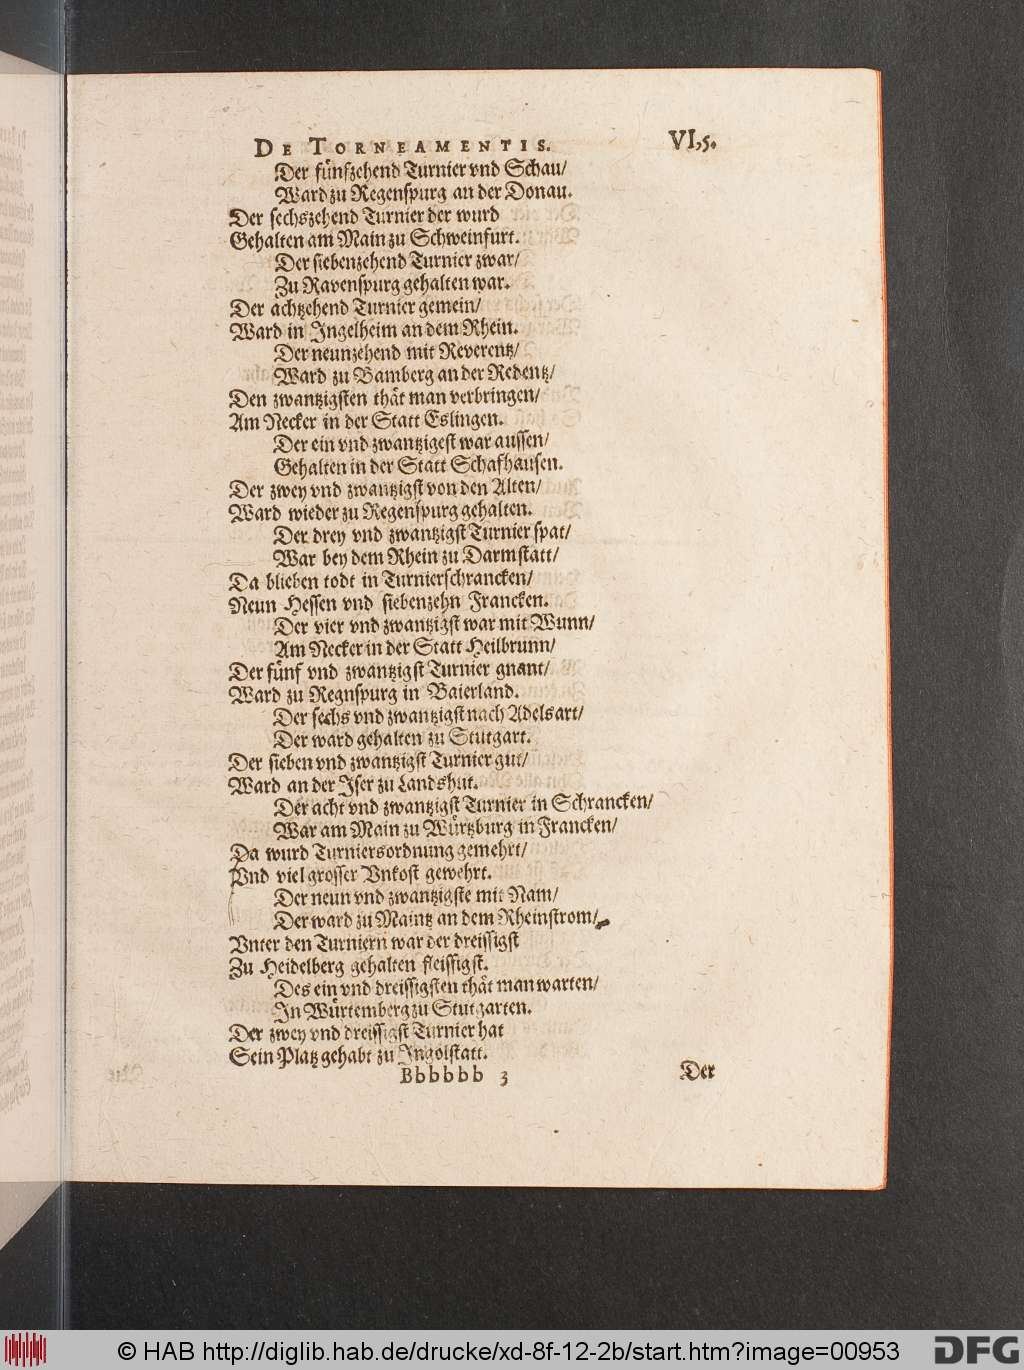 DE TORNEAMENTIS. VI,5.
Der fünfzehend Turnier vnd Schau/
Ward zu Regenspurg an der Donau.
Der sechszehend Turnier der wurd
Gehalten am Main zu Schweinfurt.
Der siebenzehend Turnier zwar/
Zu Ravenspurg gehalten war.
Der achtzehend Turnier gemein/
Ward in Ingelheim an dem Rhein.
Der neunzehend mit Reverentz/
Ward zu Bamberg an der Redentz/
Den zwantzigsten thät man verbringen/
Am Necker in der Statt Eslingen.
Der ein vnd zwantzigest war aussen/
Gehalten in der Statt Schafhausen.
Der zwey vnd zwantzigst von den Alten/
Ward wieder zu Regenspurg gehalten.
Der drey vnd zwantzigst Turnier spat/
War bey dem Rhein zu Darmstatt/
Da blieben todt in Turnierschrancken/
Neun Hessen vnd siebenzehn Francken.
Der vier vnd zwantzigst war mit Wunn/
Am Necker in der Statt Heilbrunn/
Der fünf vnd zwantzigst Turnier gnant/
Ward zu Regnspurg in Baierland.
Der sechs vnd zwantzigst nach Adelsart/
Der ward gehalten zu Stutgart.
Der sieben vnd zwantzigst Turnier gut/
Ward an der Iser zu Landshut.
Der acht vnd zwantzigst Turnier in Schrancken/
War am Main zu Würtzburg in Francken/
Da wurd Turniersordnung gemehrt/
Vnd viel grosser Vnkost gewehrt.
Der neun vnd zwantzigste mit Nam/
Der ward zu Maintz an dem Rheinstrom/
Vnter den Turniern war der dreissigst
Zu Heidelberg gehalten fleissigst.
Des ein vnd dreissigsten thät man warten/
In Würtemberg zu Stutgarten.
Der zwey vnd dreissigst Turnier hat
Sein Platz gehabt zu Ingolstatt.
Bbbbbb 3 Der
© HAB http://diglib.hab.de/drucke/xd-8f-12-2b/start.htm?image=00953 DFG